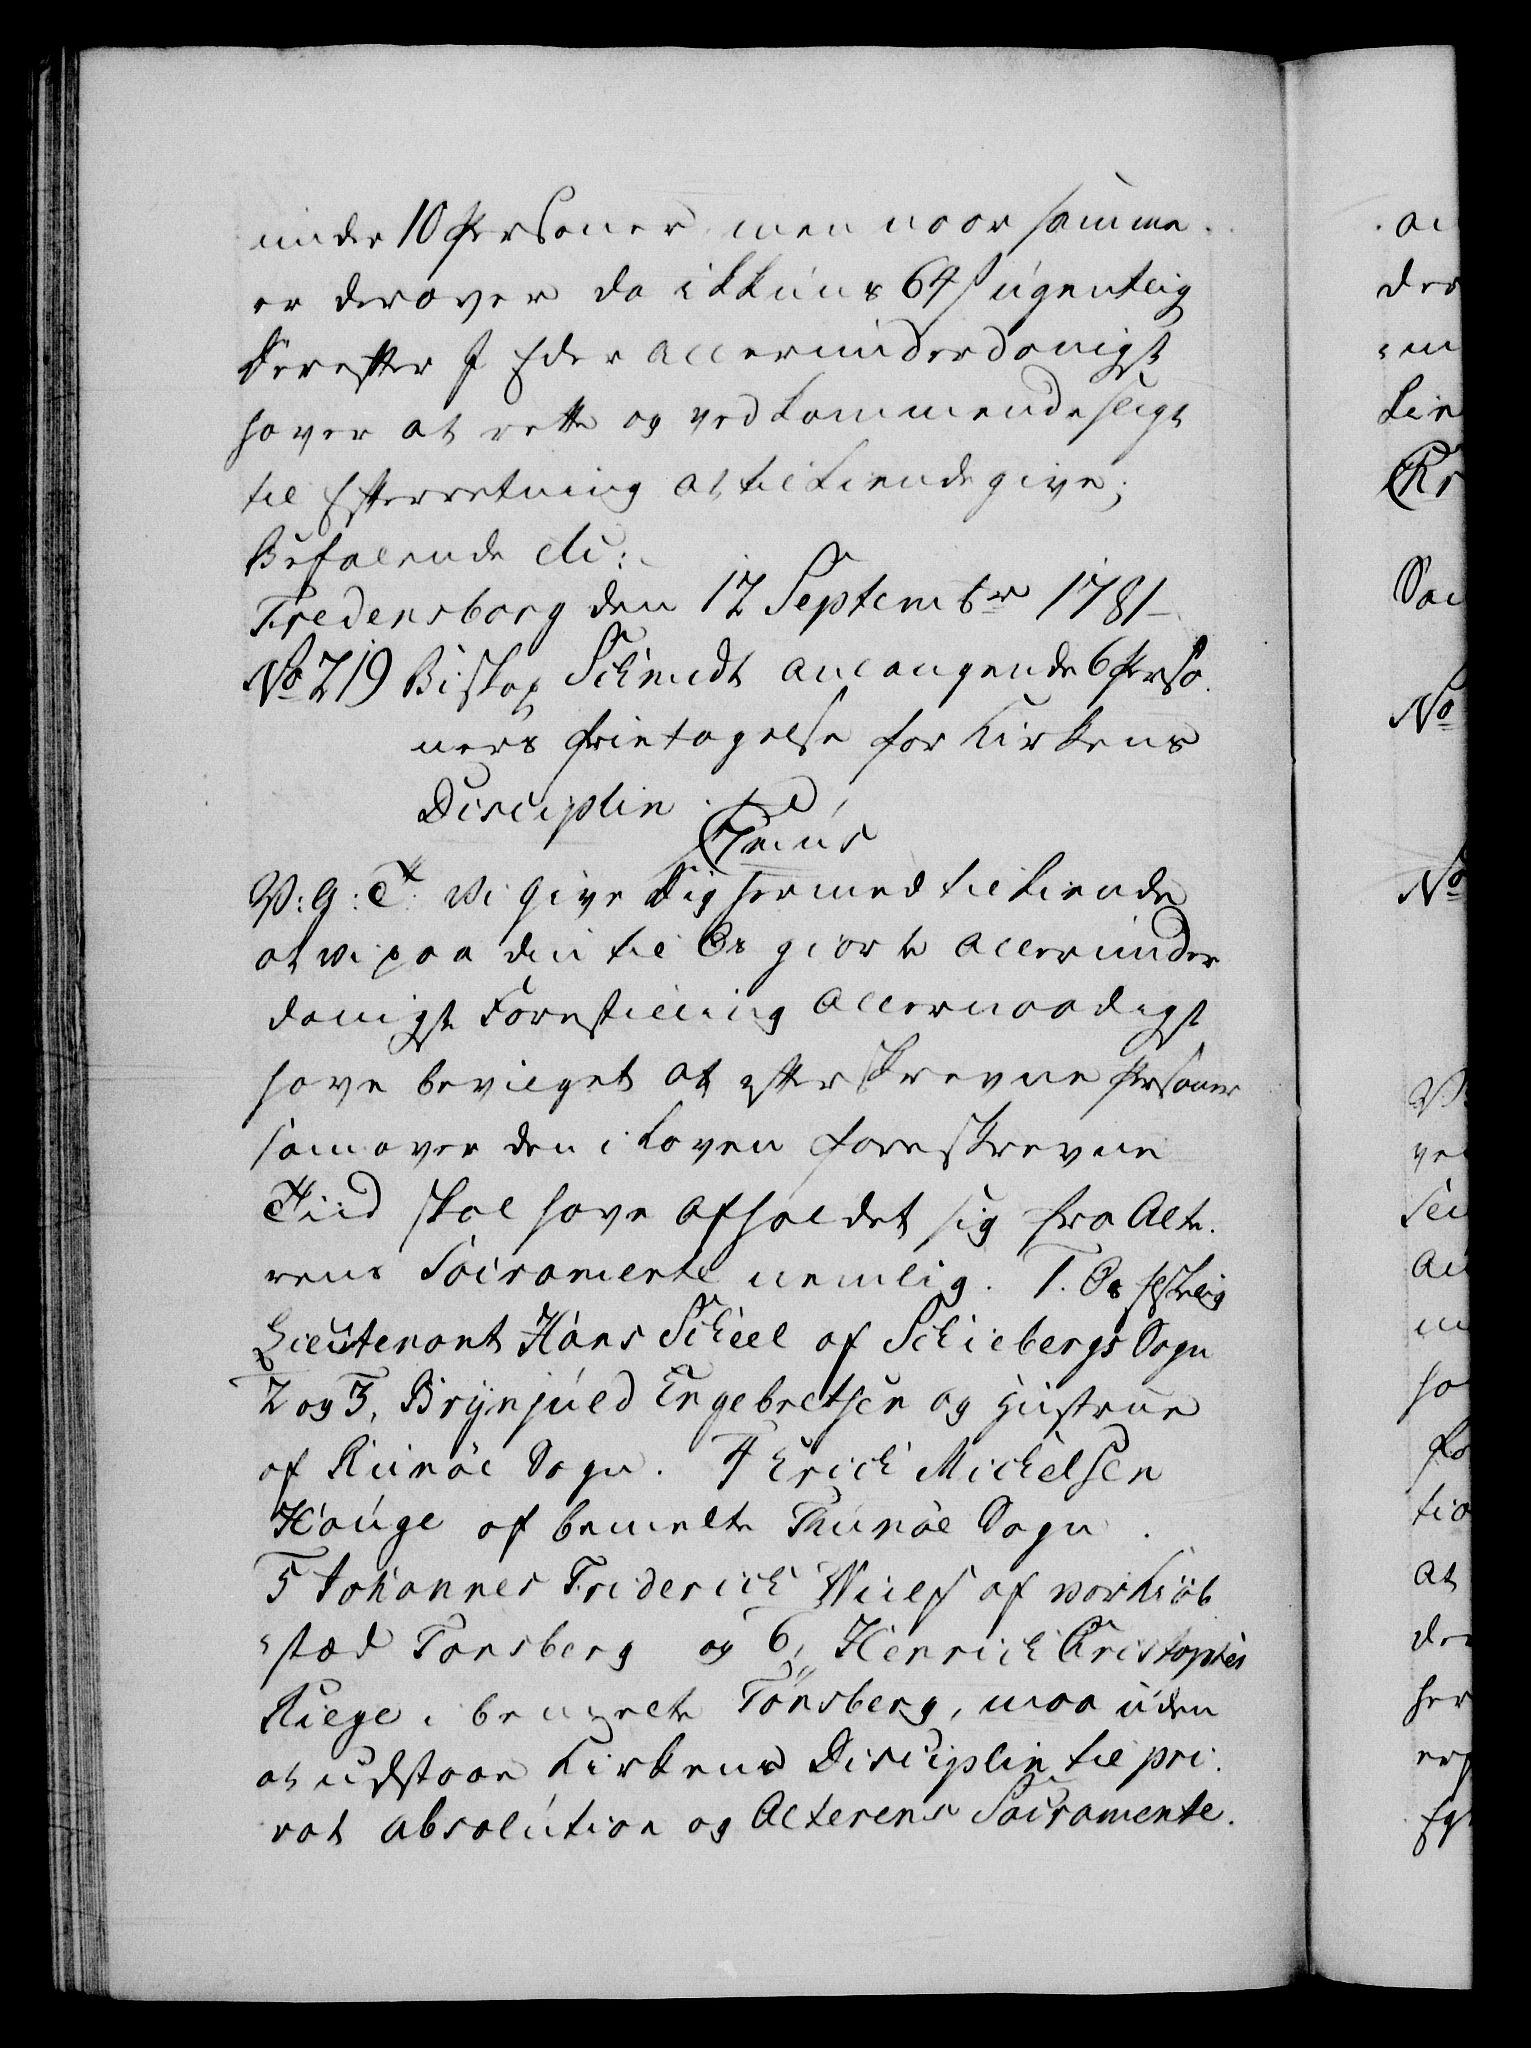 under 10 Personer men naar samme
er derover da ikkuns 64 s ugentlig
Derefter I Eder allerunderdanigst
haver at rette og vedkommende sligt
til Efterretning at tilkiendegive;
Befalende etc:
Fredensborg den 12 Septembr 1781
No 219 Biskop Schmidt anlangende 6 Perso
ners Fritagelse for Kirkens
Disciplin.
V: G: T: Vi Give Dig hermed tilkiende
at vi paa den til Os giorte allerunder
danigste Forestilling Allernaadigst
have bevilget at efterskrevne Personer
som over den i Loven foreskrevne
Tiid skal have afholdet sig fra Alte
rens Sacramente nemlig. 1. Os elskelig
Lieutenant Hans Scheel af Schiebergs Sogn
2 og 3, Brynjuld Engebretsen og Hustrue
af Sogn. 4 Erich Michelsen
Hauge af bemelte Sogn
5 Johannes Friderich af vor Kiøb
stæd Tonsberg og 6, Henrich Christopher
i bemelte Tønsberg, maa uden
at udstaae Kirkens Disciplin til pri
vat absolution og Alterens Sacramente.